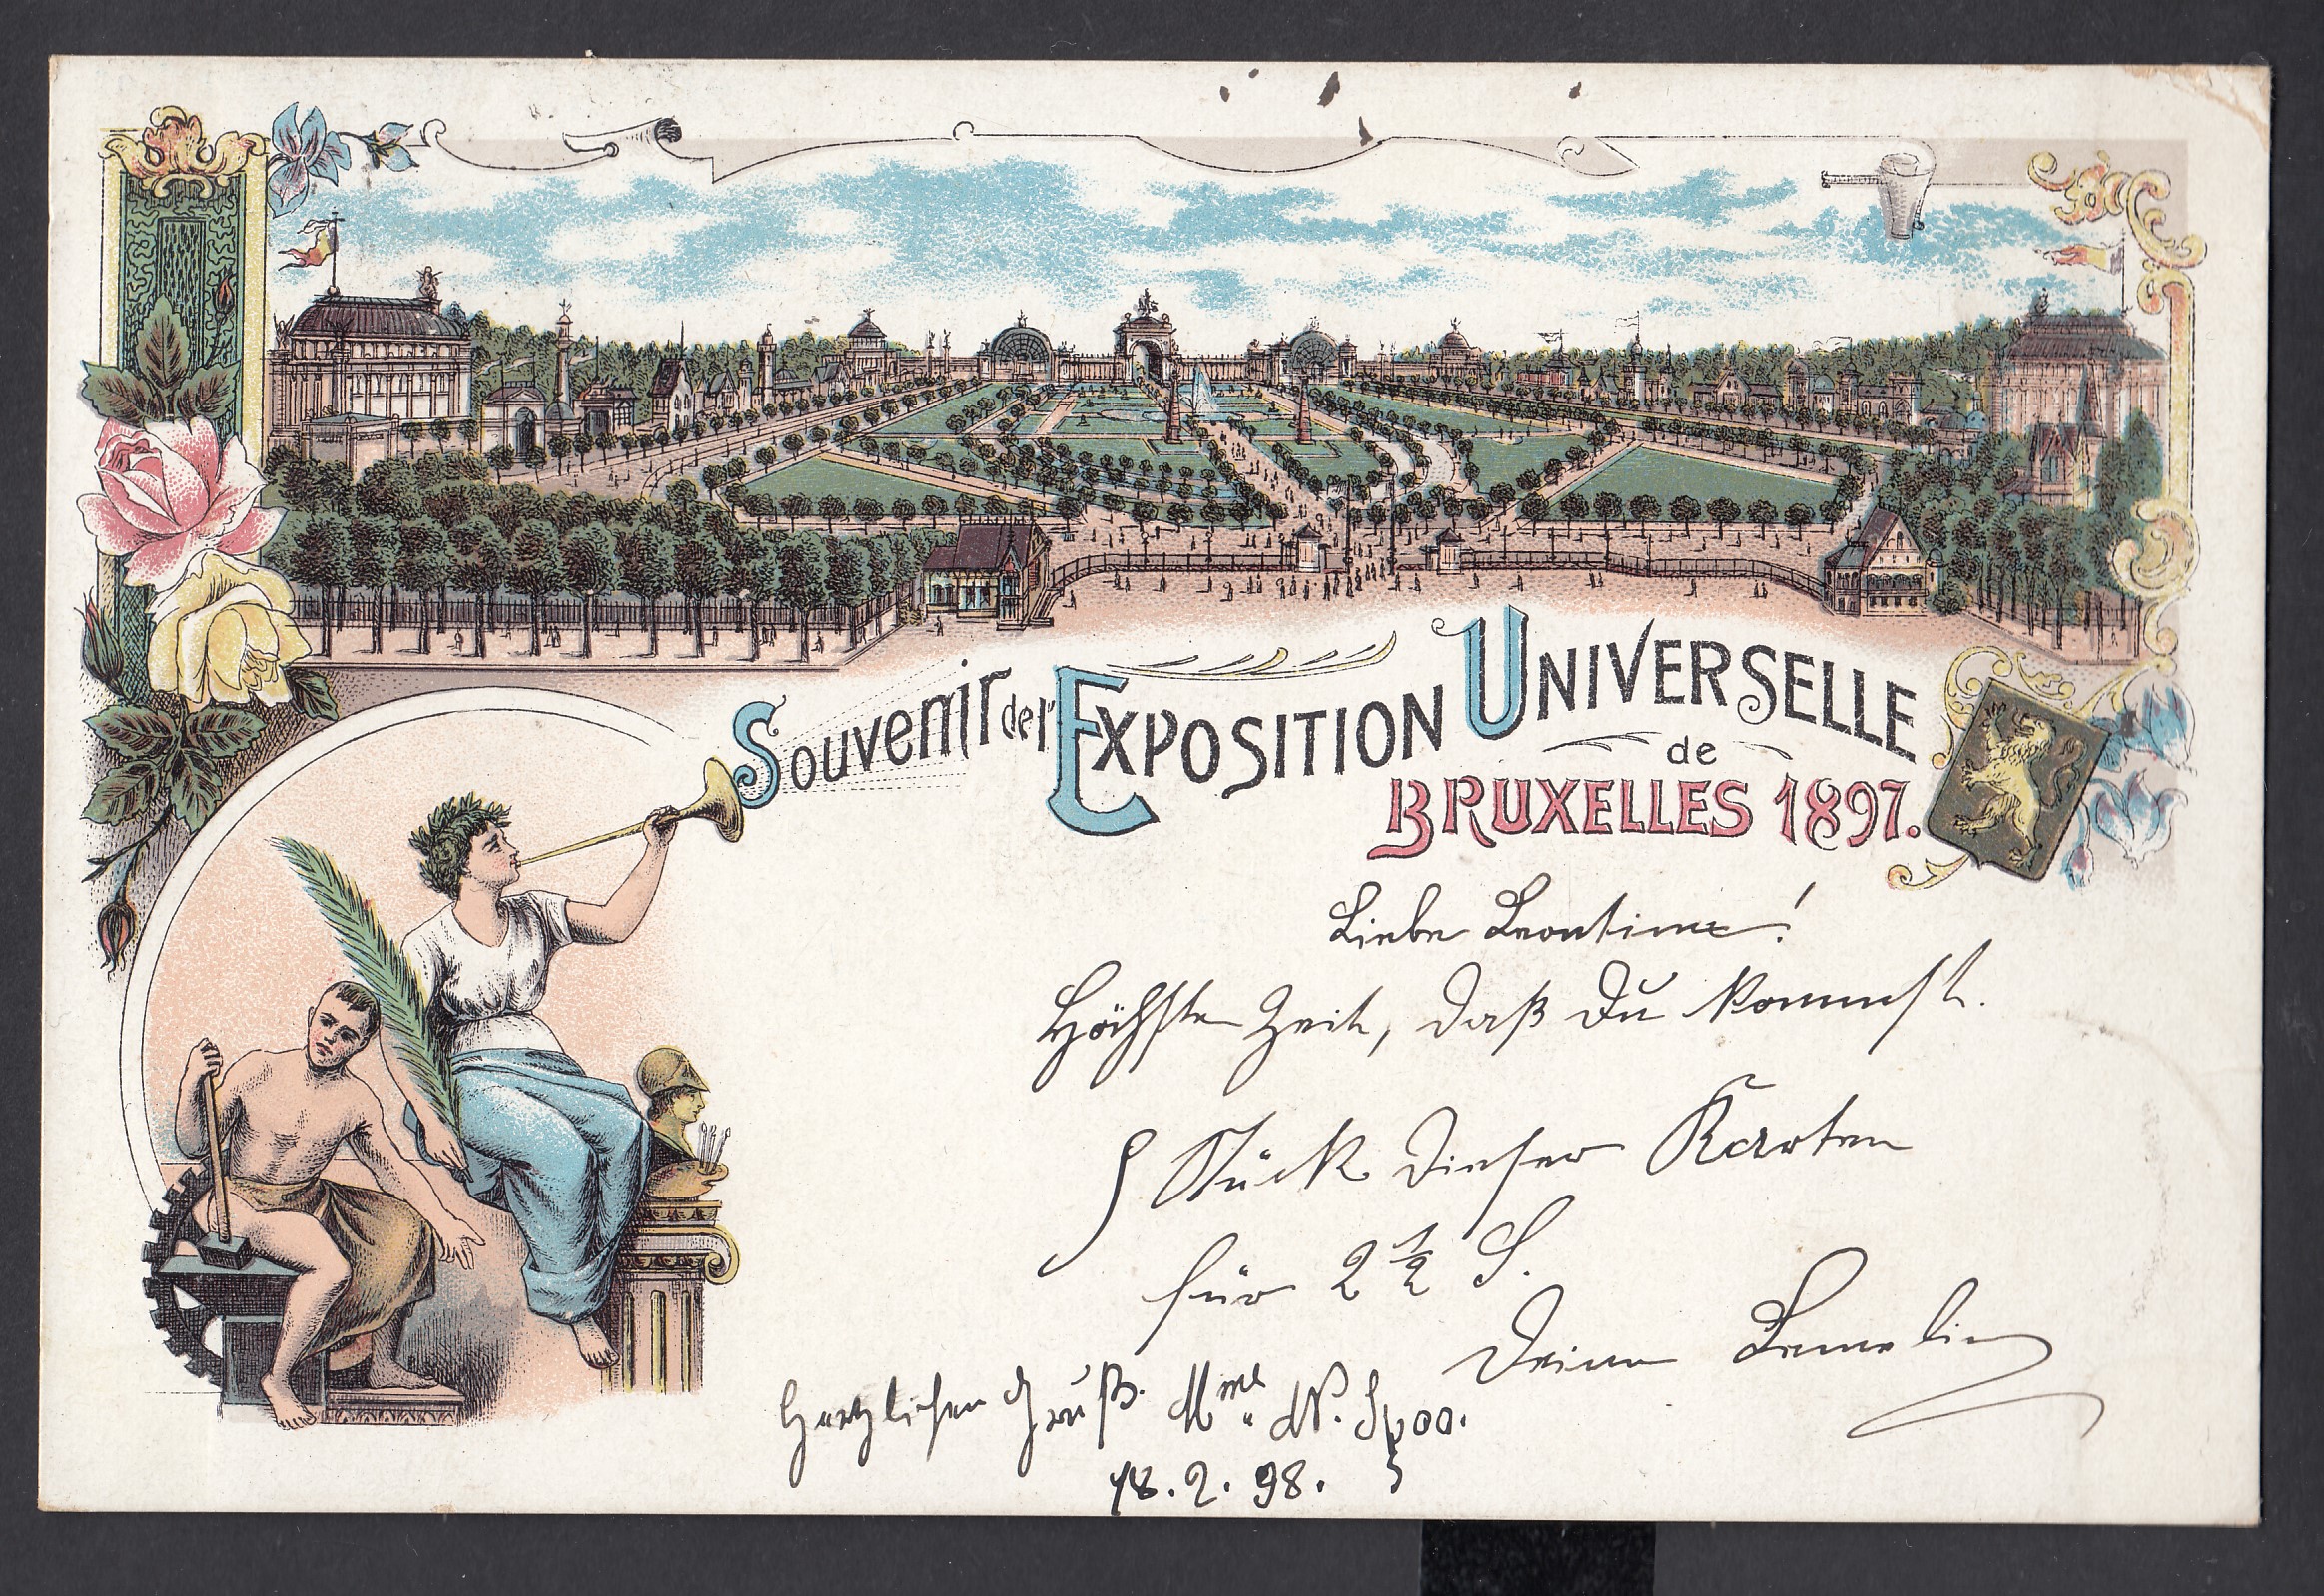 Souvenir de l'Exposition Universelle
de
Bruxelles 1897.
Liebe Leontine!
Höchste Zeit, daß Du kommst.
Stück dieser Karten
für 2 ½ S.
Deine
Herzlichen Gruß. Mme N. Spoo.
18.2.98.